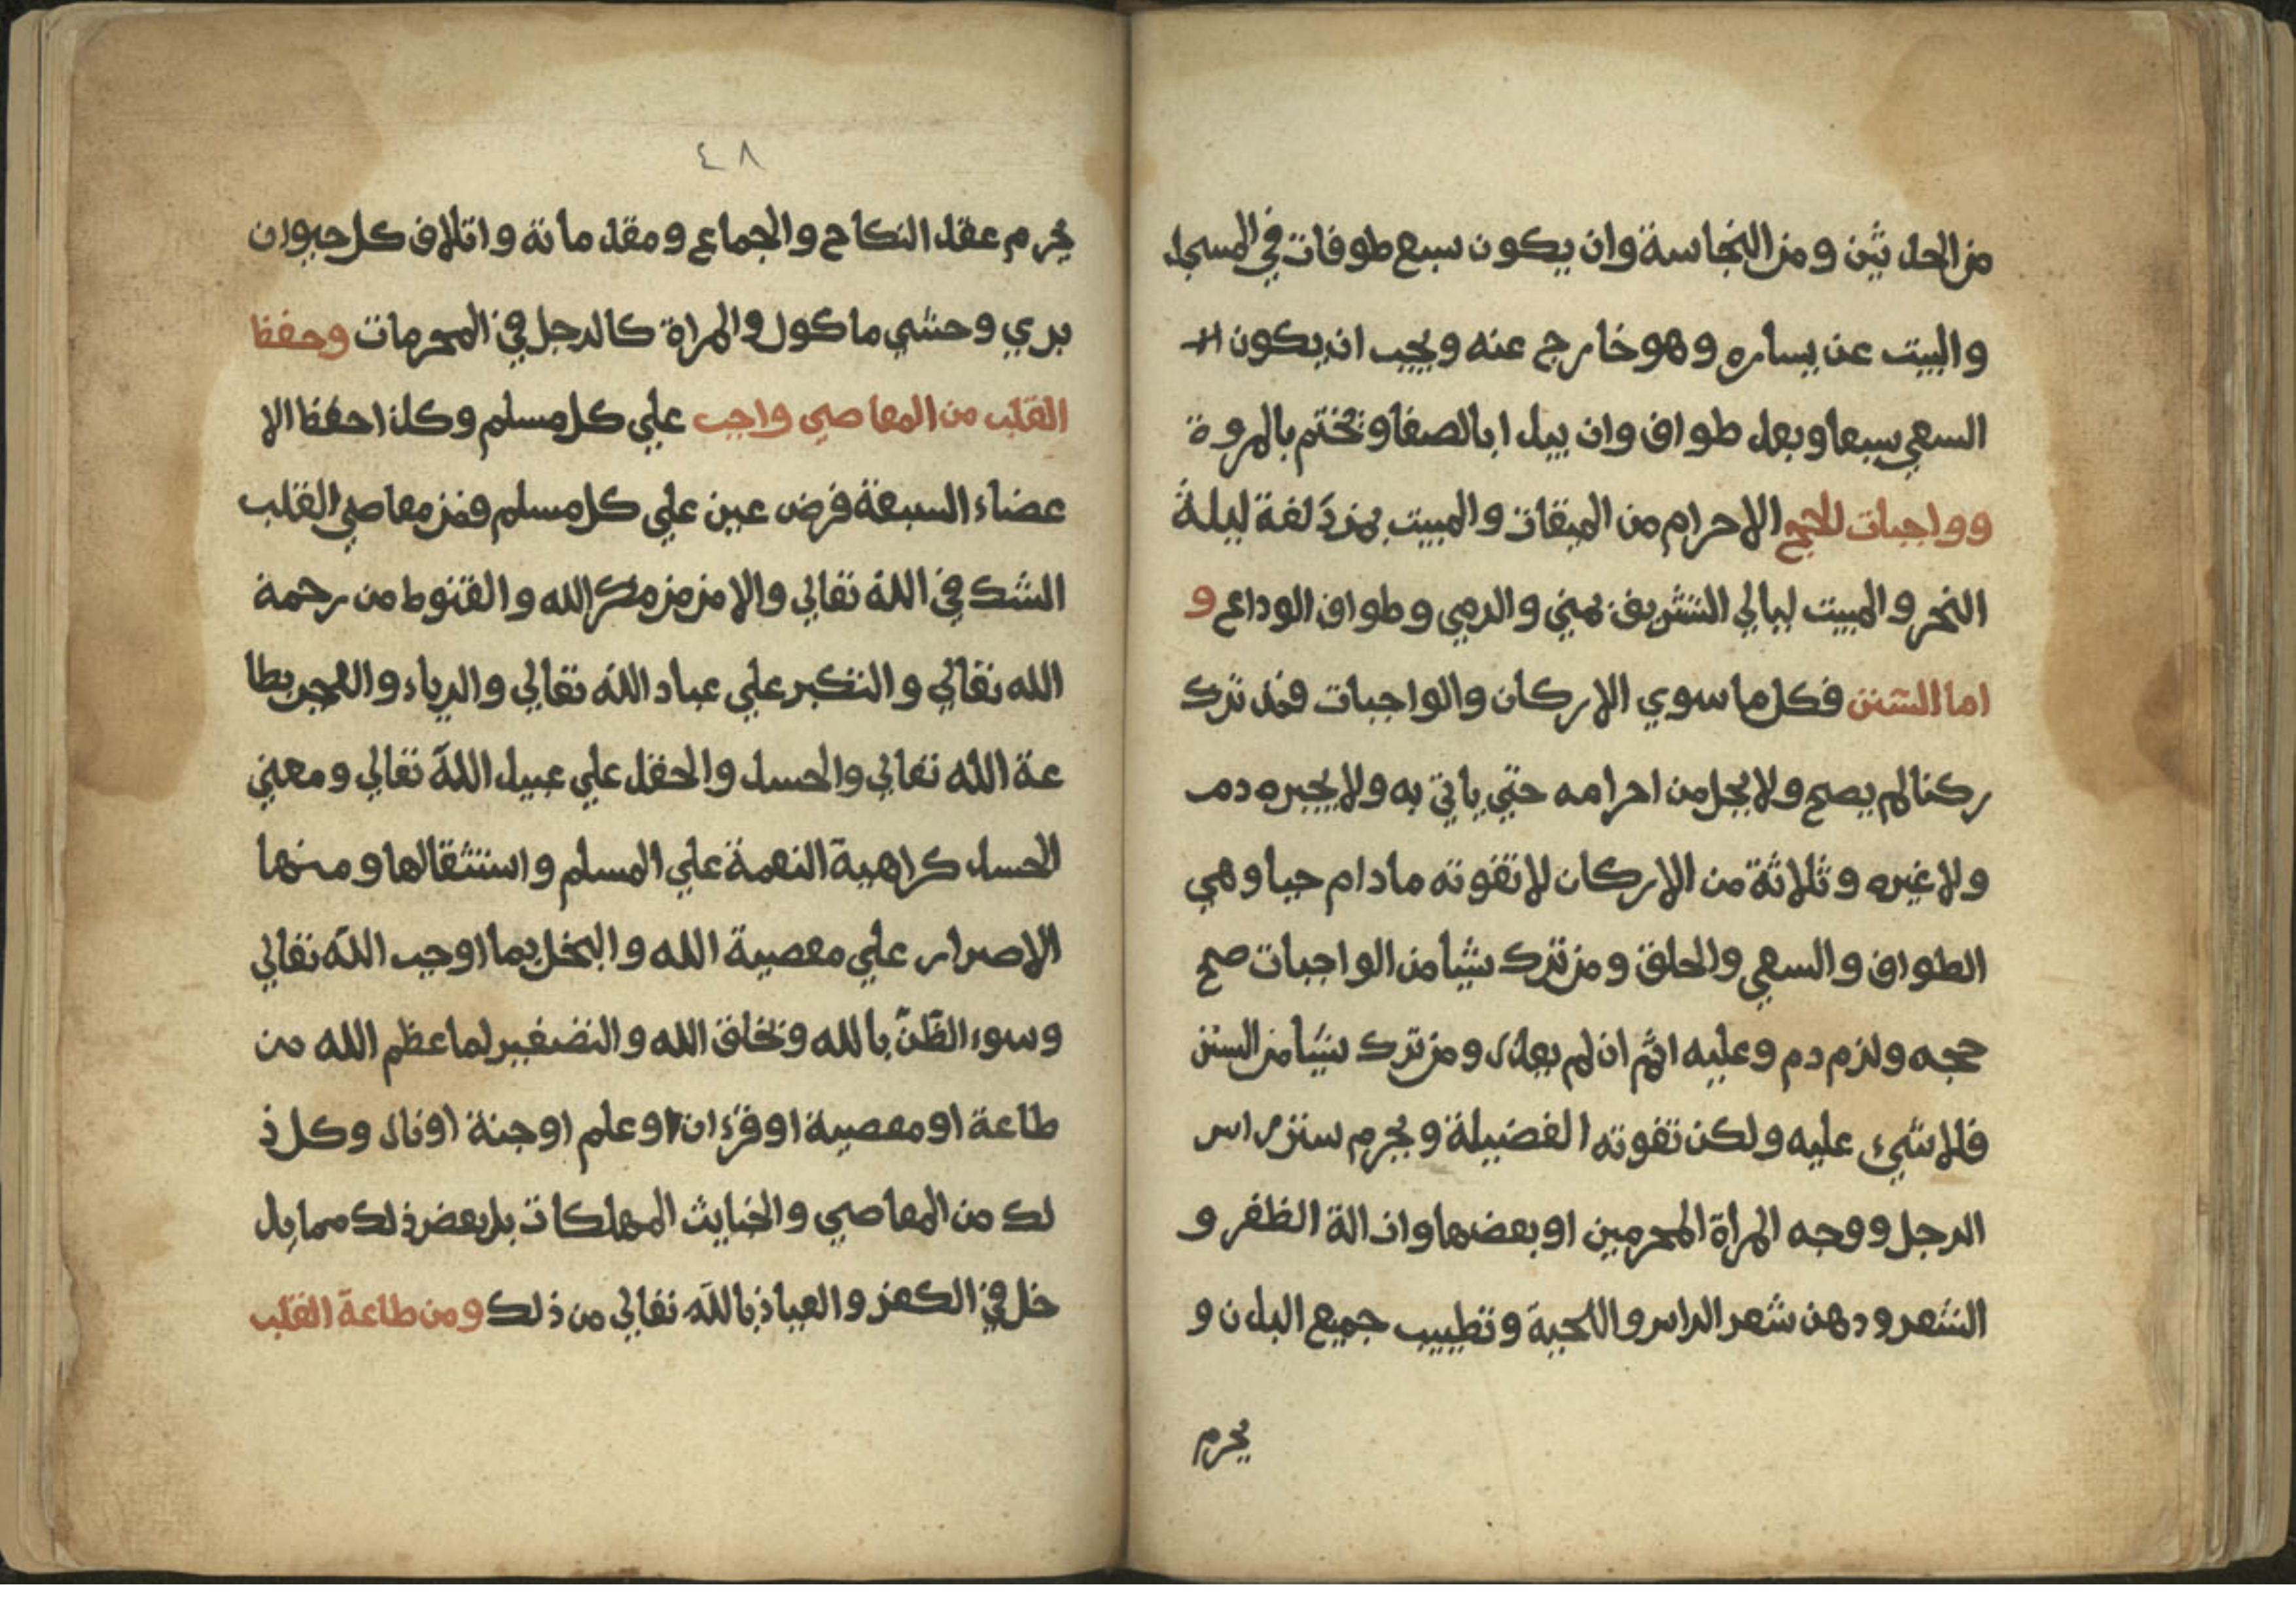 من الحدثين ومن النجاسة وان يكون سبع طوفات في المسجد
والبيت عن يساره وهو خارج عنه ويجب ان يكون
السعي سبعا وبعد طواف وان يبدا بالصفا وتختم بالمروة
وواجبات للحج الاحرام من الميقات والمبيت بمزدلفة ليلة
النحر والمبيت ليالي التشريق بمني والرمي وطواف الوداع و
اما السنن فكل ما سوي الاركان والواجبات فمن ترك
ركنا لم يصح ولا يحل من احرامه حتي ياتي به ولا يجبره دم
ولا غيره وثلاثة من الاركان لا تفوته مادام حيا وهي
الطواف والسعي والحلق ومن ترك شيا من الواجبات صح
حجه ولزم دم وعليه اثم ان لم يعذر ومن ترك شيا من السنن
فلا شيء عليه ولكن تفوته الفضيلة ويحرم ستر راس
الرجل ووجه المراة المحرمين او بعضها وازالة الظفر و
الشعر ودهن شعر الراس واللحية وتطييب جميع البدن و
يحرم
٤٨
يحرم عقد النكاح والجماع ومقدماته واتلاف كل حيوان
بري وحشي ماكول والمراة كالرجل في المحرمات وحفظ
القلب من المعاصي واجب علي كل مسلم وكذا حفظ الا
عضاء السبعة فرض عين علي كل مسلم فمن معاصي القلب
الشك في الله تعالي والامن من مكر الله والقنوط من رحمة
الله تعالي والتكبر علي عباد الله تعالي والرياء والعجب بطا
عة الله تعالي والحسد والحقد علي عبيد الله تعالي ومعني
الحسد كراهية النعمة علي المسلم واستثقالها ومنها
الاصرار علي معصية الله والبخل بما اوجب الله تعالي
وسوء الظن بالله وبخلق الله والتصغير لما عظم الله من
طاعة او معصية او قرءان او علم او جنة او نار وكل ذ
لك من المعاصي والخبايث المهلكات بل بعض ذلك مما يد
خل في الكفر والعياذ بالله تعالي من ذلك ومن طاعة القلب